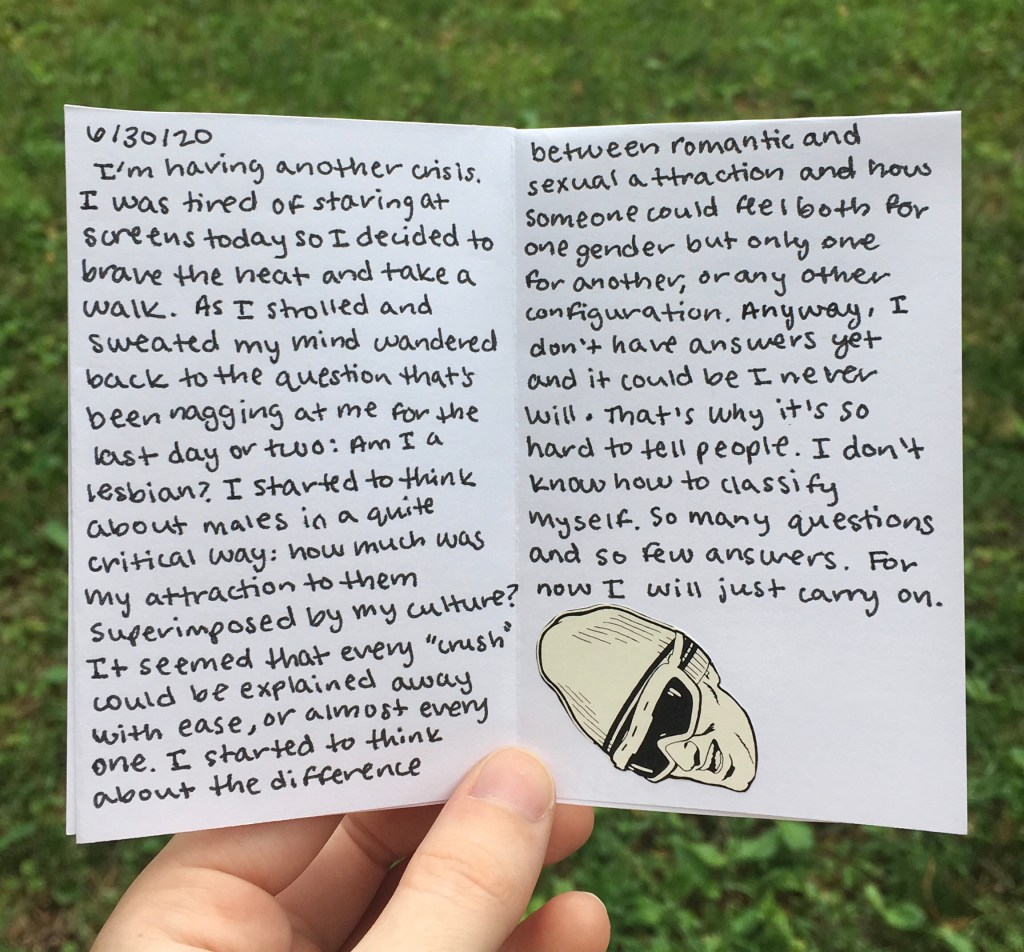 6/30/20
I'm having another crisis.
I was tired of staring at
screens today so I decided to
brave the heat and take a
walk. As I strolled and
sweated my mind wandered
back to the question that's
been nagging at me for the
last day or two: Am I a
lesbian? I started to think
about males in a quite
critical way: how much was
my attraction to them
superimposed by my culture?
It seemed that every "crush"
could be explained away
with ease, or almost every
one. I started to think
about the difference
between romantic and
sexual attraction and how
someone could feel both for
one gender but only one
for another, or any other
configuration. Anyway, I
don't have answers yet
and it could be I never
will. That's why it's so
hard to tell people. I don't
know how to classify
myself. So many questions
and so few answers. For
now I will just carry on.